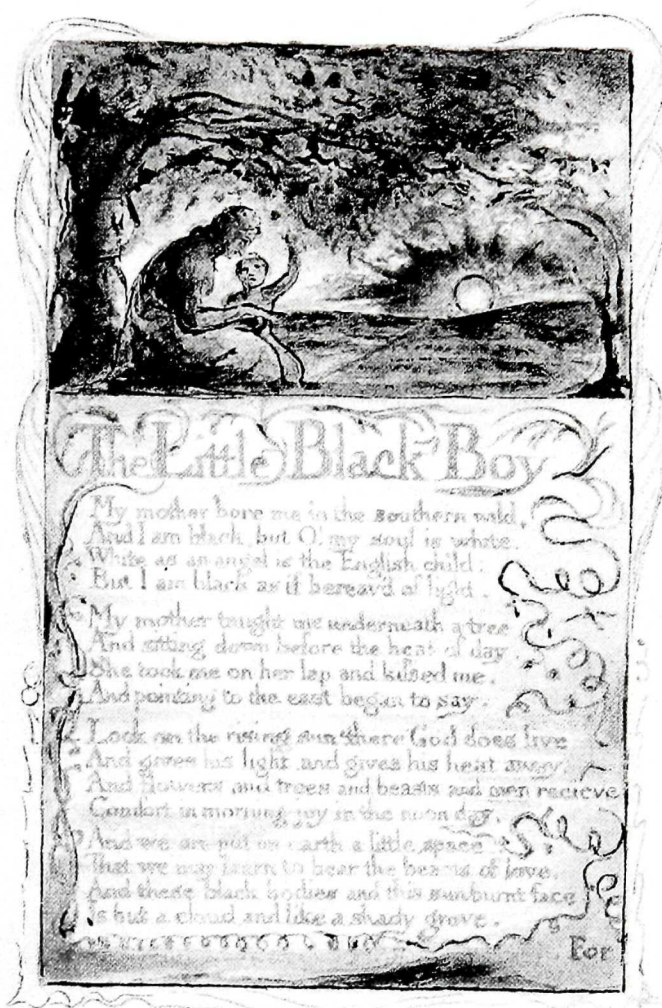 The Little Black Boy
My mother bore me in the southern wild,
And I am black, but O! my soul is white.
White as an angel is the English child:
But I am black as if bereav'd of light.
My mother taught me underneath a tree
And sitting down before the heat of day
She took me on her lap and kissed me,
And pointing to the east began to say.
Look on the rising sun: there God does live
And gives his light, and gives his heat away.
And flowers and trees and beasts and men recieve
Comfort in morning joy in the noon day.
And we are put on earth a little space
That we may learn to bear the beams of love,
And these black bodies and this sunburnt face
Is but a cloud and like a shady grove.
For